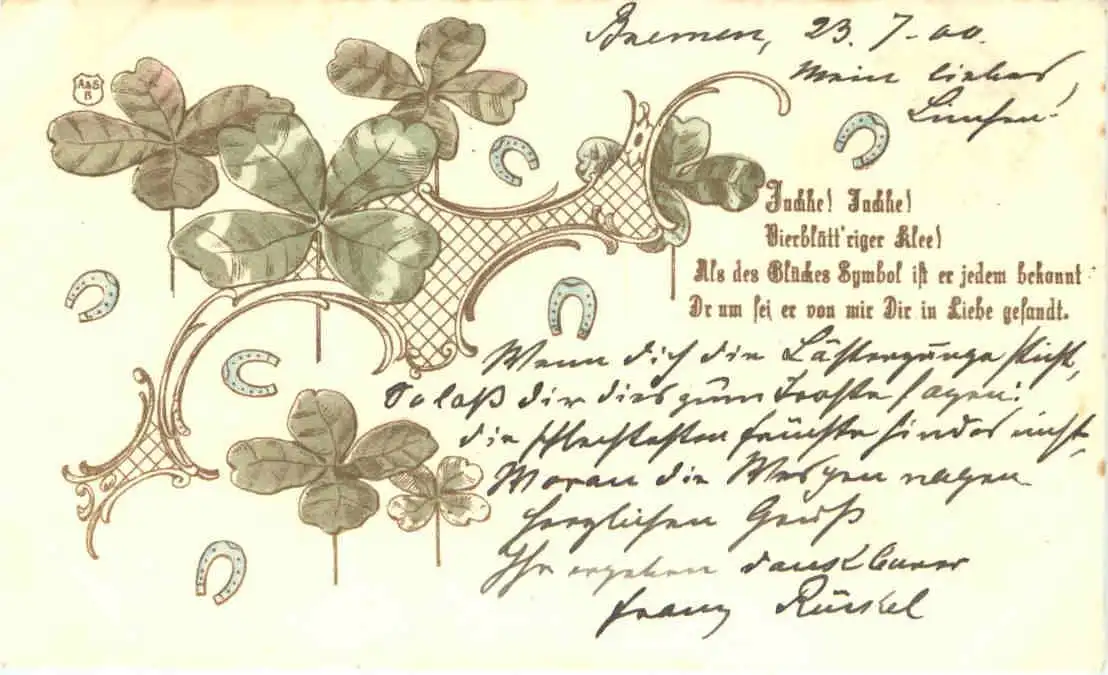 A&S
B
Bremen, 23. 7. 00.
Mein liebes
Juchhe! Juchhe!
Vierblätt'riger Klee!
Als des Glückes Symbol ist er jedem bekannt
Drum sei er von mir Dir in Liebe gesandt.
Wenn dich die Lästerzunge sticht,
So laß dir dies zum Troste sagen:
die schlechtesten Früchte sind es nicht,
Woran die Wespen nagen
herzlichen Gruß
Ihr ergeben dankbarer
Franz